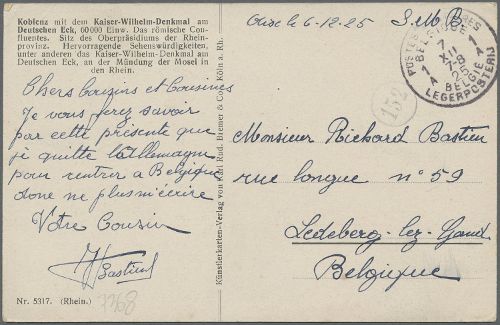 Koblenz mit dem Kaiser-Wilhelm-Denkmal am
Deutschen Eck, 60000 Einw. Das römische Con-
fluentes. Sitz des Oberpräsidiums der Rhein-
provinz. Hervorragende Sehenswürdigkeiten,
unter anderen das Kaiser-Wilhelm-Denkmal am
Deutschen Eck, an der Mündung der Mosel in
den Rhein.
le 6-12-25
S.M.B
POSTES MILITAIRES
BELGIQUE
1 7 1
XII
A 7-8 A
25
BELGIE
LEGERPOSTERIJ
152
Chers Cousins et Cousines
Je vous ferez savoir
par cette présente que
je quitte l'allemagne
pour rentrer a Belgique
donc ne plus m'écrire
Votre Cousin
Bastien
Künstlerkarten-Verlag von Karl Rud. Bremer & Co., Köln a. Rh.
Monsieur Richard Bastien
rue longue n° 59
Ledeberg-lez-Gand
Belgique
Nr. 5317. (Rhein.)
7768